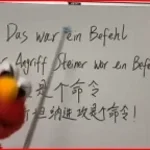 Das war ein Befehl
Angriff Steiner war ein Befehl
是个命令
坦纳进攻是个命令！